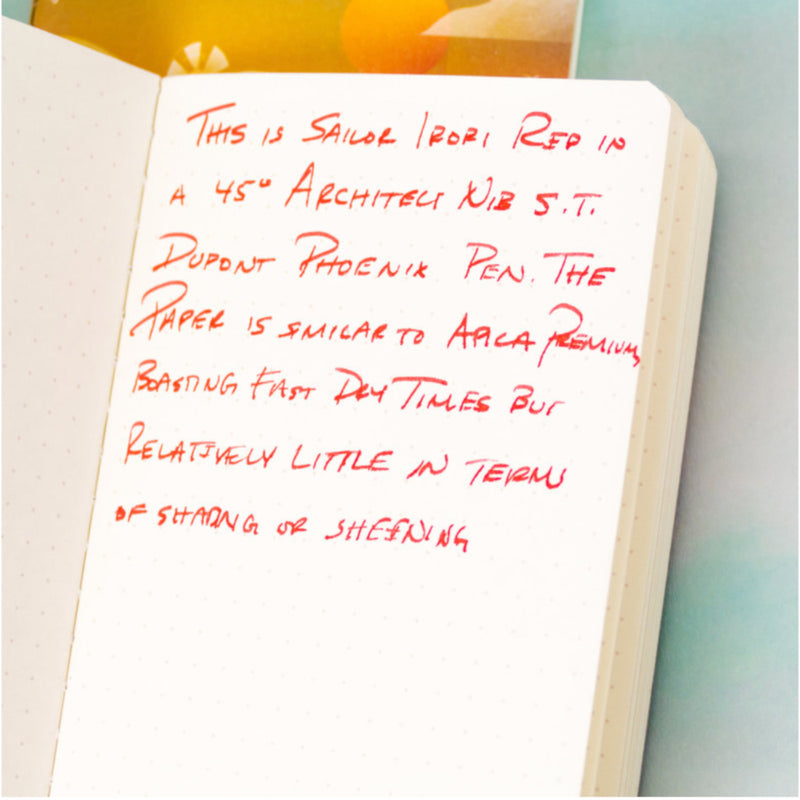 THIS IS SAILOR IRORI RED IN
A 45° ARCHITECT NIB S.T.
DUPONT PHOENIX PEN. THE
PAPER IS SIMILAR TO APICA PREMIUM,
BOASTING FAST DRY TIMES BUT
RELATIVELY LITTLE IN TERMS
OF SHADING OR SHEENING